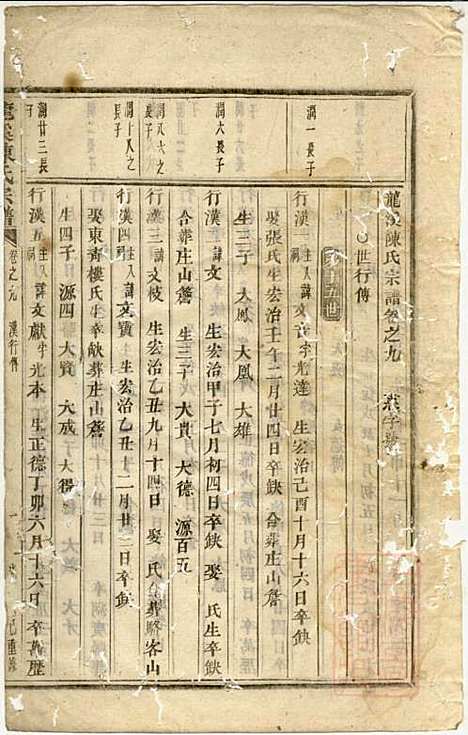 龍溪陳氏宗譜卷之九
世行傳
第十五世
潤一長子
行漢一 諱文 字光達 生宏治己酉十月十六日卒缺
娶張氏生宏治壬午二月廿四日卒缺 合葬庄山簷
生三子 大鳳 大凰 大雄
潤六長子
行漢 諱文 生宏治甲子七月初四日卒缺 娶 氏生卒缺
合葬庄山簷 生三子 大貴 大德 源百五
潤八次之長子
行漢三 諱文枝 生宏治乙丑九月十四日 娶 氏合葬 客山
潤十八之長子
行漢四 諱文寶 生宏治乙丑十二月廿三日卒缺
娶東齊樓氏生卒缺葬庄山簷
生四子 源四 大寶 大成 大得
潤廿三長子
行漢五 諱文獻 字光本 生正德丁卯六月十六日卒萬歷
龍溪陳氏宗譜
卷之九 漢行傳
重修